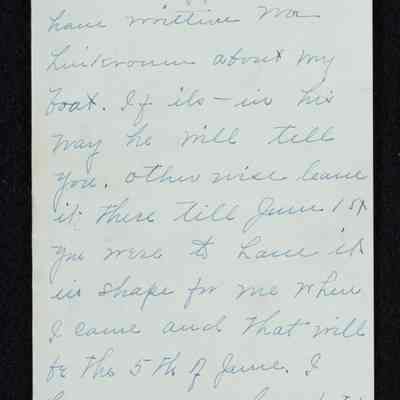 have written Mr
about my
boat. If its in his
way he will tell
you. otherwise leave
it there till June 1st
you were to have it
in shape for me when
I came and that will
be the 5th of June. I